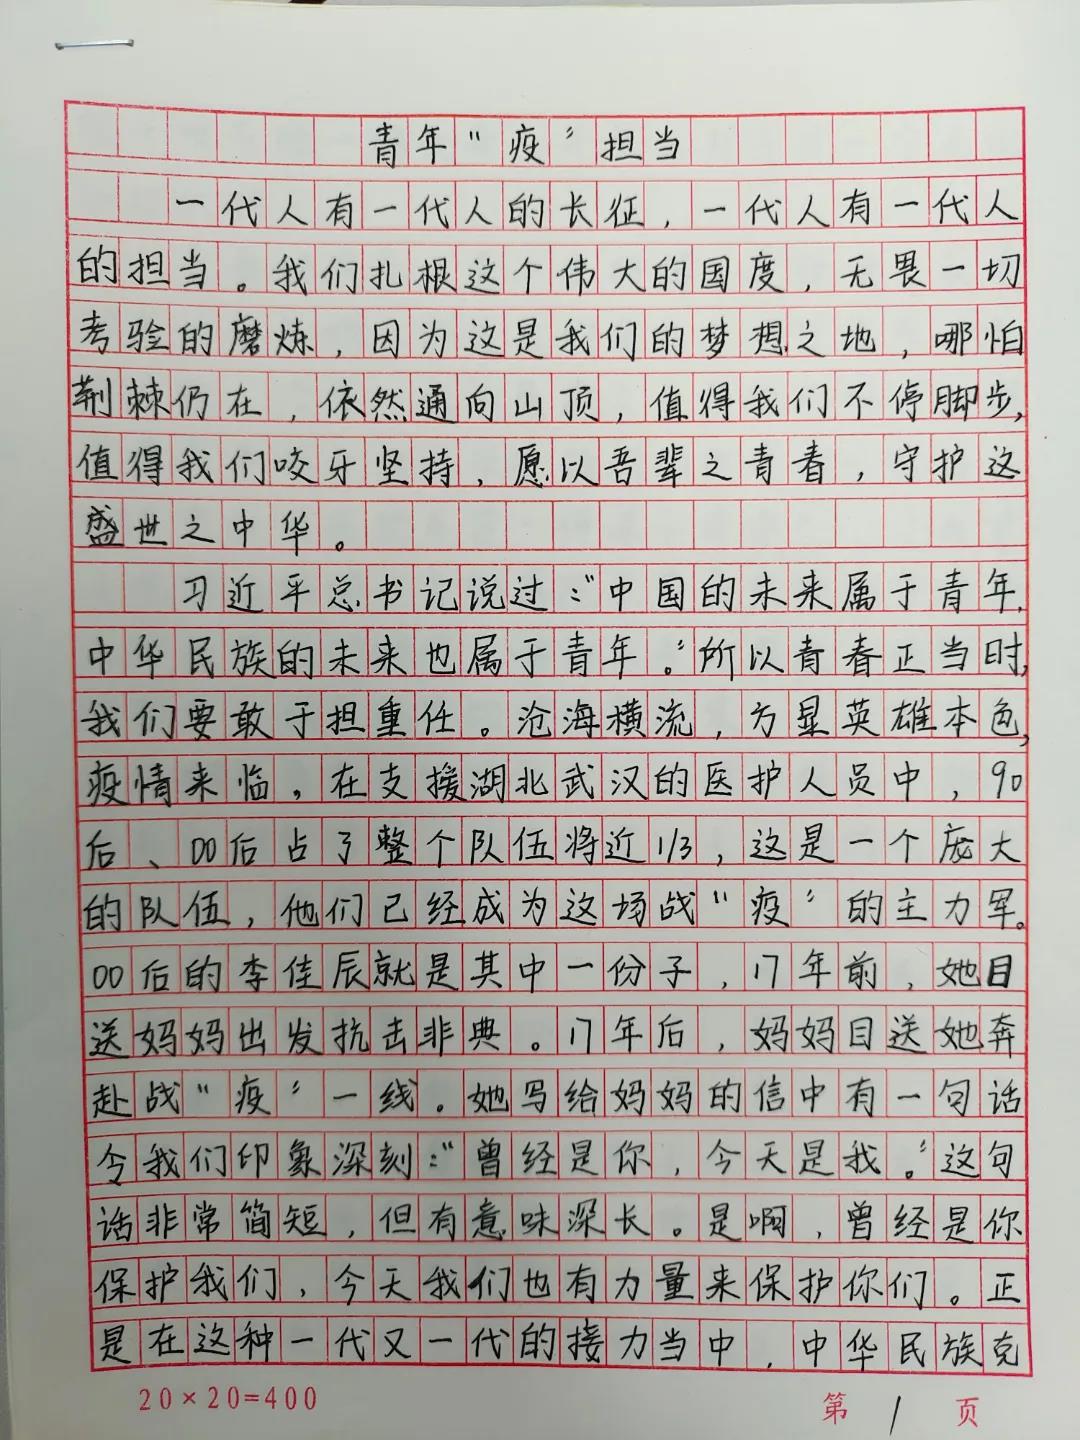 青年“疫”担当
一代人有一代人的长征，一代人有一代人
的担当。我们扎根这个伟大的国度，无畏一切
考验的磨炼，因为这是我们的梦想之地，哪怕
荆棘仍在，依然通向山顶，值得我们不停脚步，
值得我们咬牙坚持，愿以吾辈之青春，守护这
盛世之中华。
习近平总书记说过：“中国的未来属于青年，
中华民族的未来也属于青年。”所以青春正当时，
我们要敢于担重任。沧海横流，方显英雄本色，
疫情来临，在支援湖北武汉的医护人员中，90
后、00后占了整个队伍将近1/3，这是一个庞大
的队伍，他们已经成为这场战“疫”的主力军。
00后的李佳辰就是其中一份子，17年前，她目
送妈妈出发抗击非典。17年后，妈妈目送她奔
赴战“疫”一线。她写给妈妈的信中有一句话
令我们印象深刻：“曾经是你，今天是我。”这句
话非常简短，但有意味深长。是啊，曾经是你
保护我们，今天我们也有力量来保护你们。正
是在这种一代又一代的接力当中，中华民族克
20×20=400
第1页